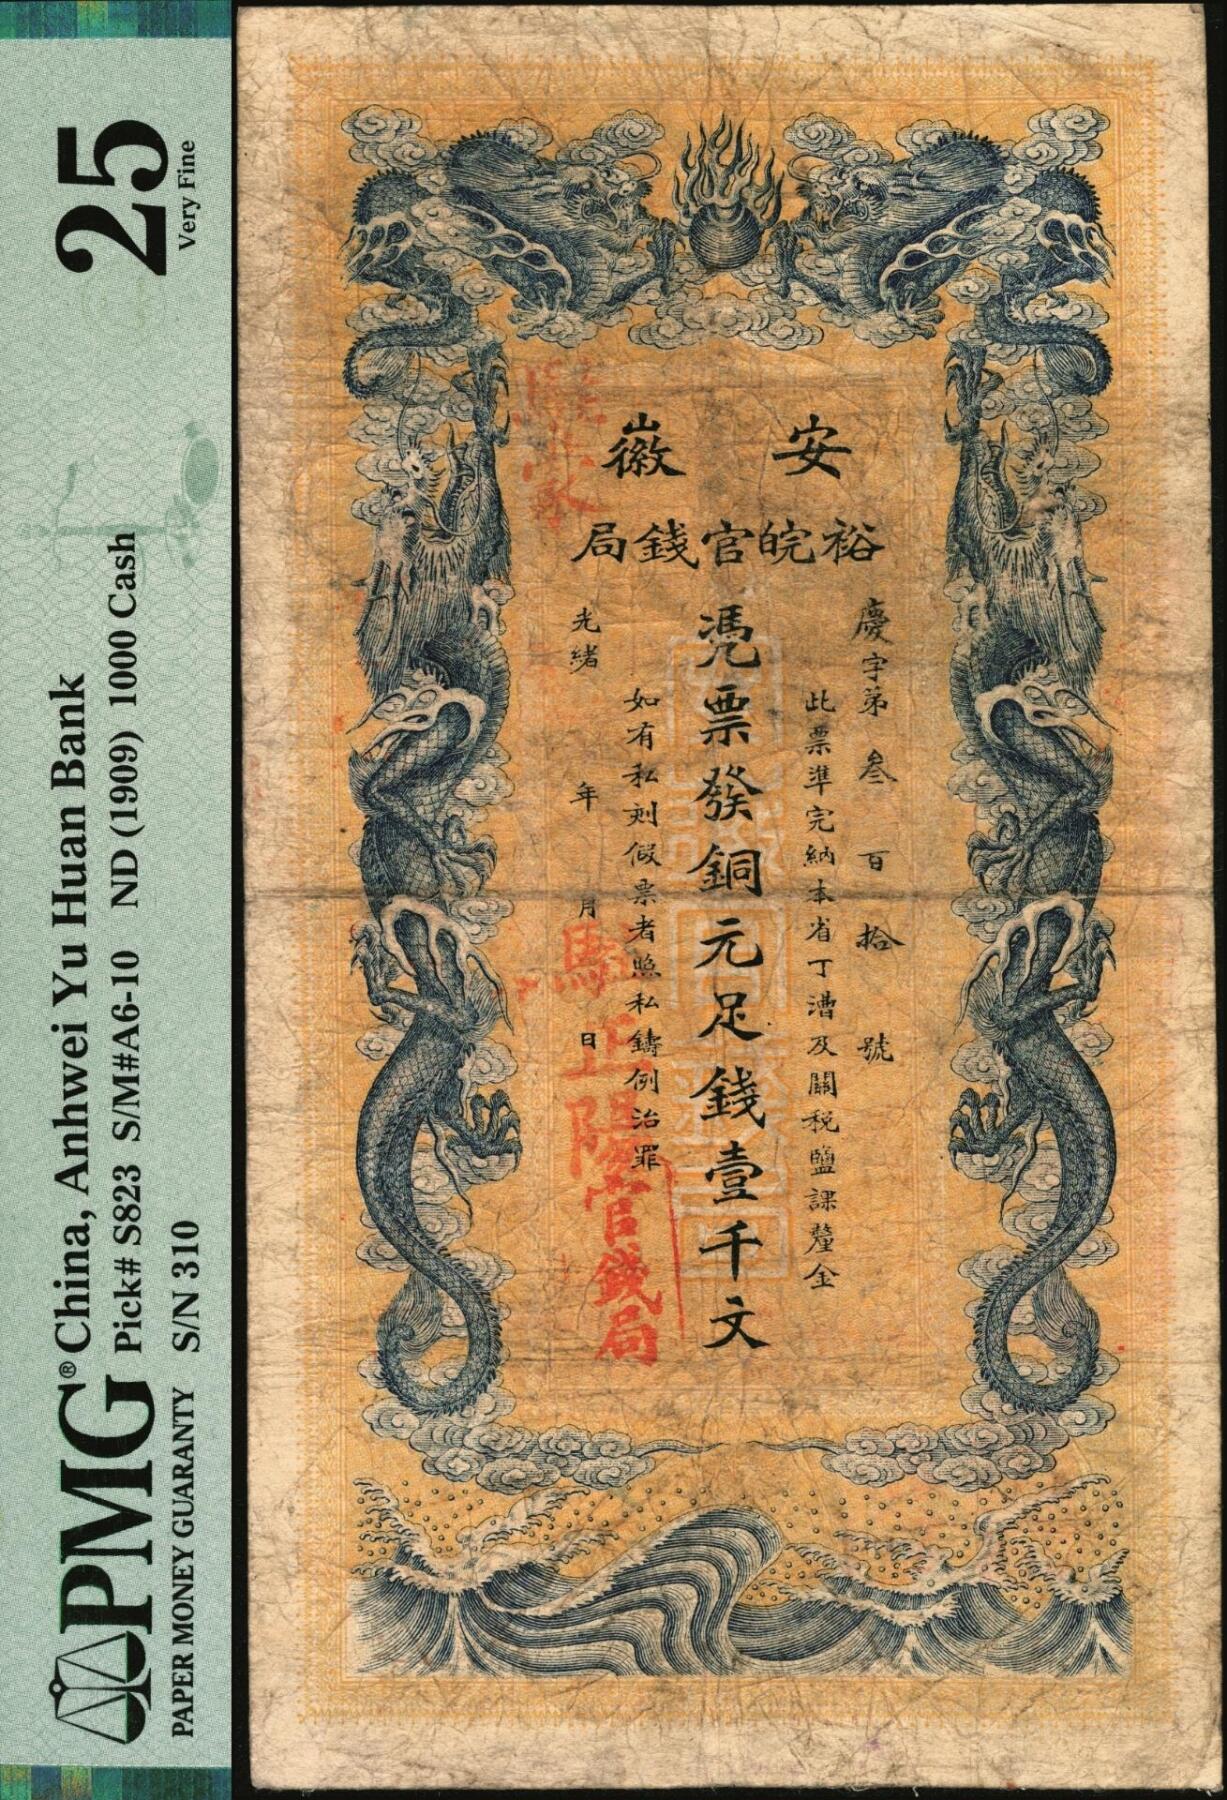 PMG®
PAPER MONEY GUARANTY
China, Anhwei Yu Huan Bank
Pick# S823 S/M#A6-10 ND (1909) 1000 Cash
S/N 310
25
Very Fine
安徽
裕皖官錢局
慶字第叁百拾號
此票準完納本省丁漕及關稅鹽課釐金
憑票發銅元足錢壹千文
如有私刻假票者照私鑄例治罪
光緒 年 月 日
正陽官錢局